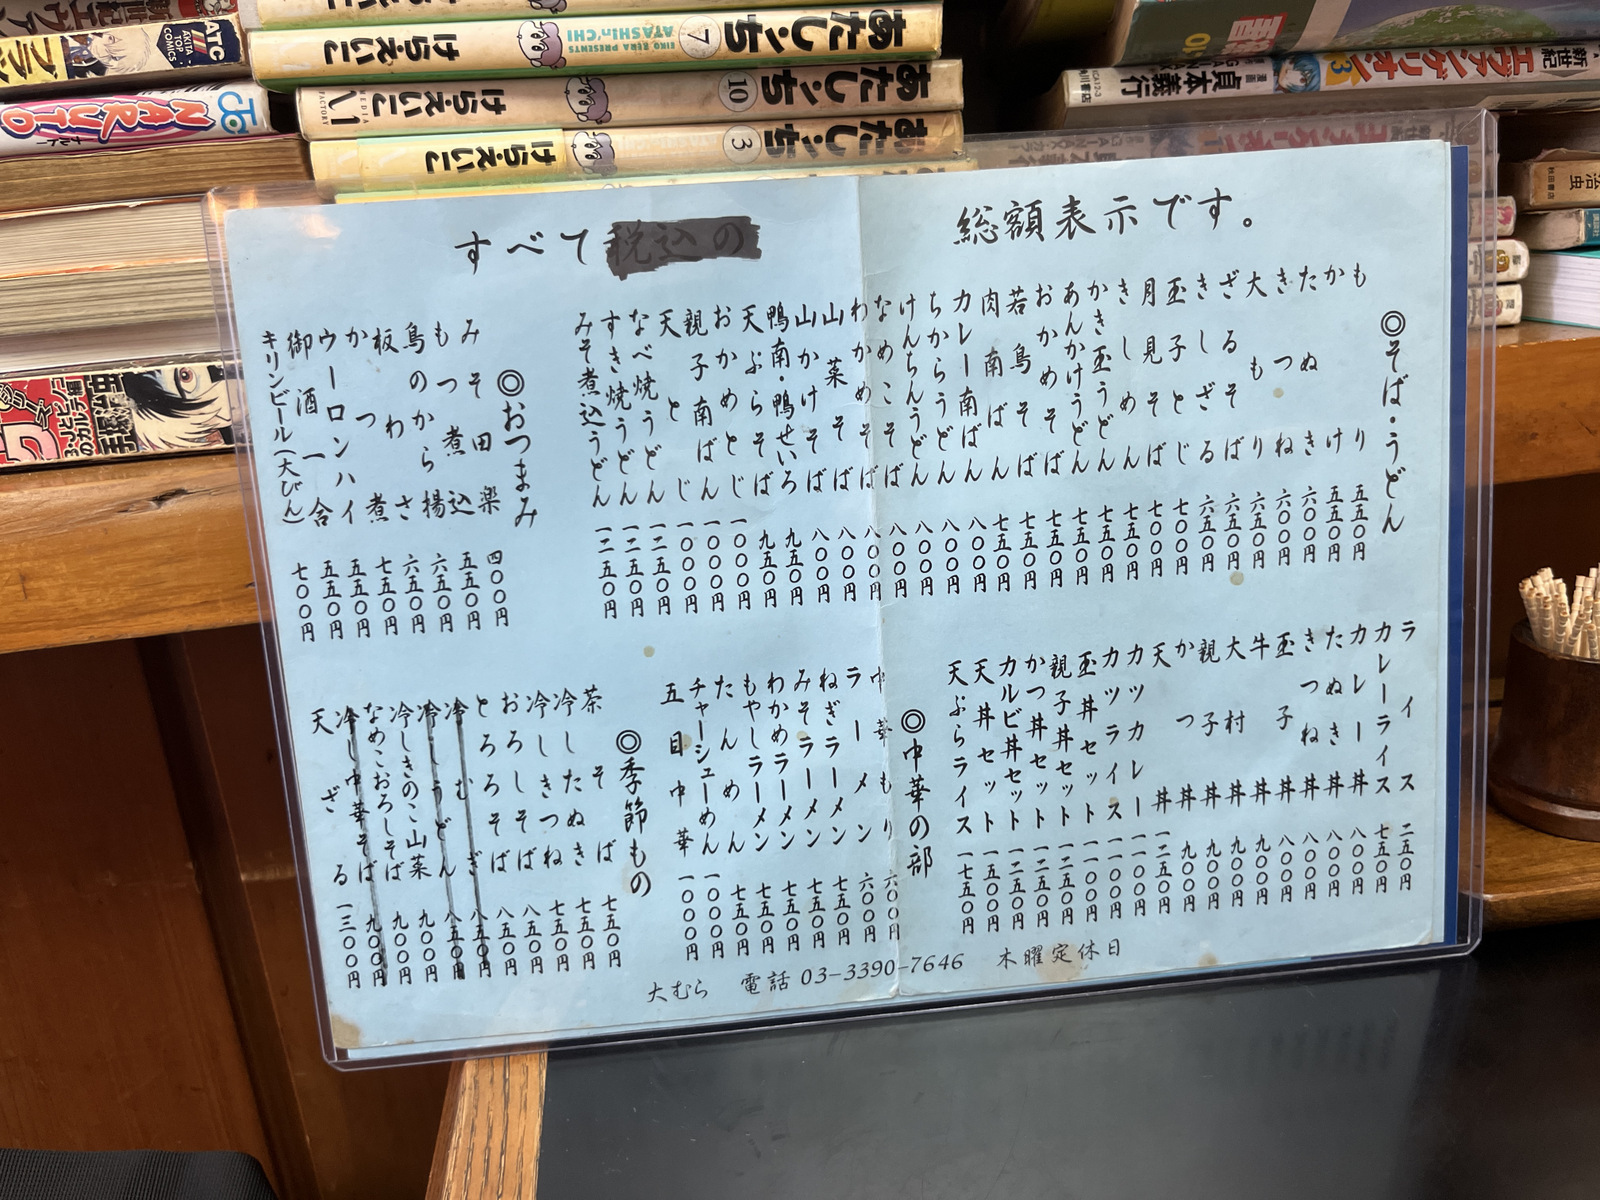 ATC
AKITA TOP COMICS
NARUTO
ナルト
あたしンち
7
EIKO KERA PRESENTS
ATASHIn'CHI
けらえいこ
あたしンち
10
けらえいこ
MEDIA FACTORY
あたしンち
3
けらえいこ
新世紀エヴァンゲリオン
3
貞本義行
角川書店
すべて税込の総額表示です。
◎そば・うどん
もり 五五〇円
かけ 五五〇円
たぬき 六〇〇円
きつね 六〇〇円
大もり 六五〇円
ざるそば 六五〇円
きしざる 六五〇円
玉子とじ 七〇〇円
月見そば 七〇〇円
きしめん 七五〇円
かき玉うどん 七五〇円
あんかけうどん 七五〇円
おかめそば 七五〇円
若鳥そば 七五〇円
肉南ばん 七五〇円
カレー南ばん 八〇〇円
ちからうどん 八〇〇円
けんちんうどん 八〇〇円
なめこそば 八〇〇円
わかめそば 八〇〇円
山菜そば 八〇〇円
山かけそば 八〇〇円
鴨南・鴨せいろ 九五〇円
天ぷらそば 九五〇円
おかめとじ 一〇〇〇円
親子南ばん 一〇〇〇円
天とじ 一〇〇〇円
なべ焼うどん 一二五〇円
すき焼うどん 一二五〇円
みそ煮込うどん 一二五〇円
◎おつまみ
みそ田楽 四〇〇円
もつ煮込 五五〇円
鳥のから揚 六五〇円
板わさ 六五〇円
かつ煮 七五〇円
ウーロンハイ 五五〇円
御酒一合 五五〇円
キリンビール(大びん) 七〇〇円
ライス 二五〇円
カレーライス 七五〇円
カレー丼 八〇〇円
たぬき丼 八〇〇円
きつね丼 八〇〇円
玉子丼 八〇〇円
牛丼 九〇〇円
大村丼 九〇〇円
親子丼 九〇〇円
かつ丼 九〇〇円
天丼 一二五〇円
カツカレー 一一〇〇円
カツライス 一一〇〇円
玉丼セット 一一〇〇円
親子丼セット 一二五〇円
かつ丼セット 一二五〇円
カルビ丼セット 一二五〇円
天丼セット 一五〇〇円
天ぷらライス 一七五〇円
◎中華の部
中華もり 六〇〇円
ラーメン 六〇〇円
ねぎラーメン 七五〇円
みそラーメン 七五〇円
わかめラーメン 七五〇円
もやしラーメン 七五〇円
たんめん 七五〇円
チャーシューめん 一〇〇〇円
五目中華 一〇〇〇円
◎季節もの
茶そば 七五〇円
冷したぬき 七五〇円
冷しきつね 七五〇円
おろしそば 八五〇円
とろろそば 八五〇円
冷むぎ 八五〇円
冷しうどん 八五〇円
冷しきのこ山菜 九〇〇円
なめこおろしそば 九〇〇円
冷し中華そば 九〇〇円
天ざる 一三〇〇円
大むら 電話 03-3390-7646 木曜定休日